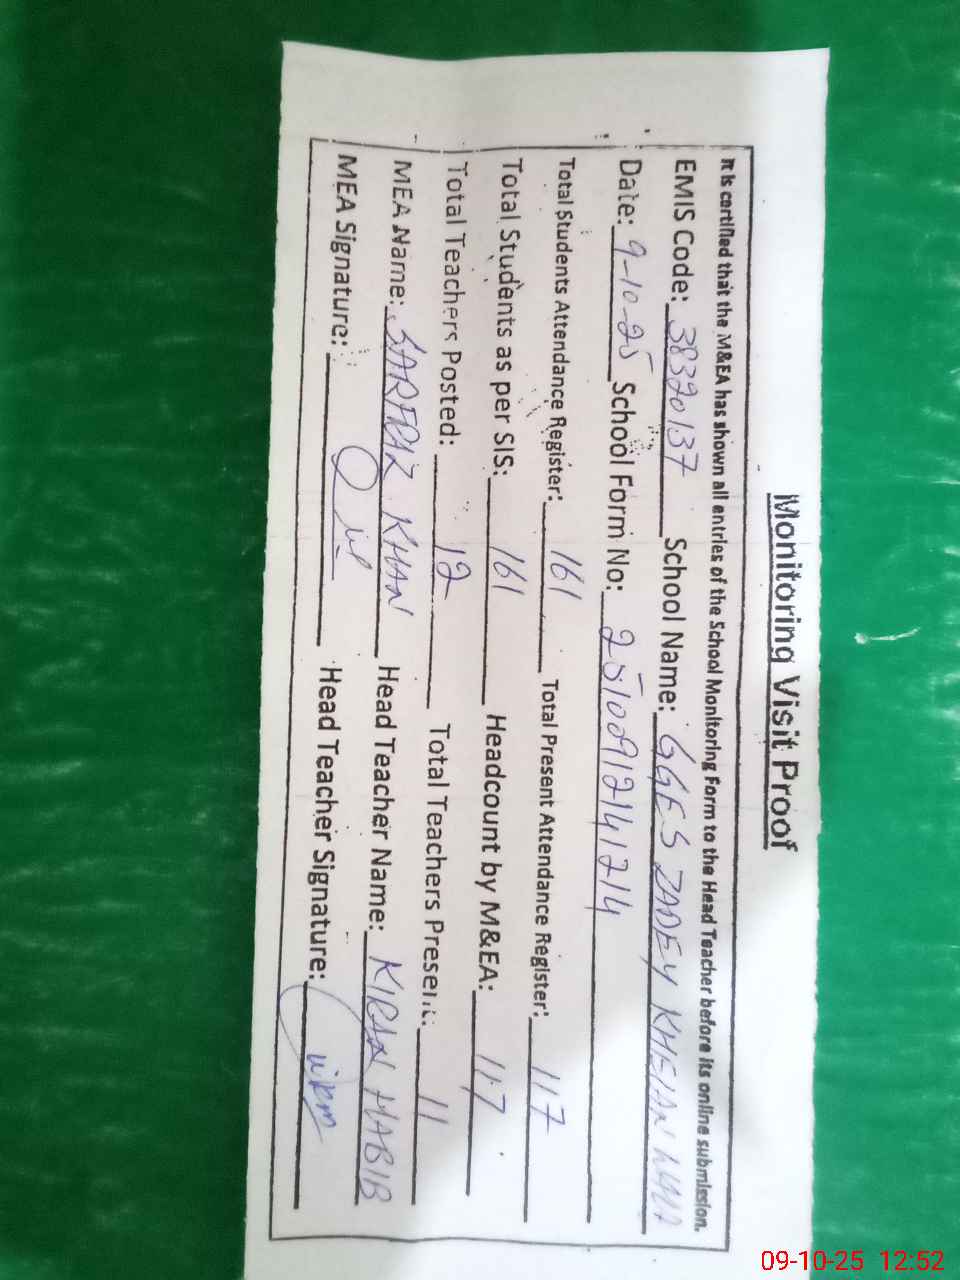 Monitoring Visit Proof
It is certified that the M&EA has shown all entries of the School Monitoring Form to the Head Teacher before its online submission.
EMIS Code: 38320137 School Name: GGES ZADEY KHELAN WALA
Date: 9-10-25 School Form No: 25100912141214
Total Students Attendance Register: 161 Total Present Attendance Register: 117
Total Students as per SIS: 161 Headcount by M&EA: 117
Total Teachers Posted: 12 Total Teachers Present: 11
MEA Name: SARFRAZ KHAN Head Teacher Name: KIRAN HABIB
MEA Signature: Head Teacher Signature:
09-10-25 12:52